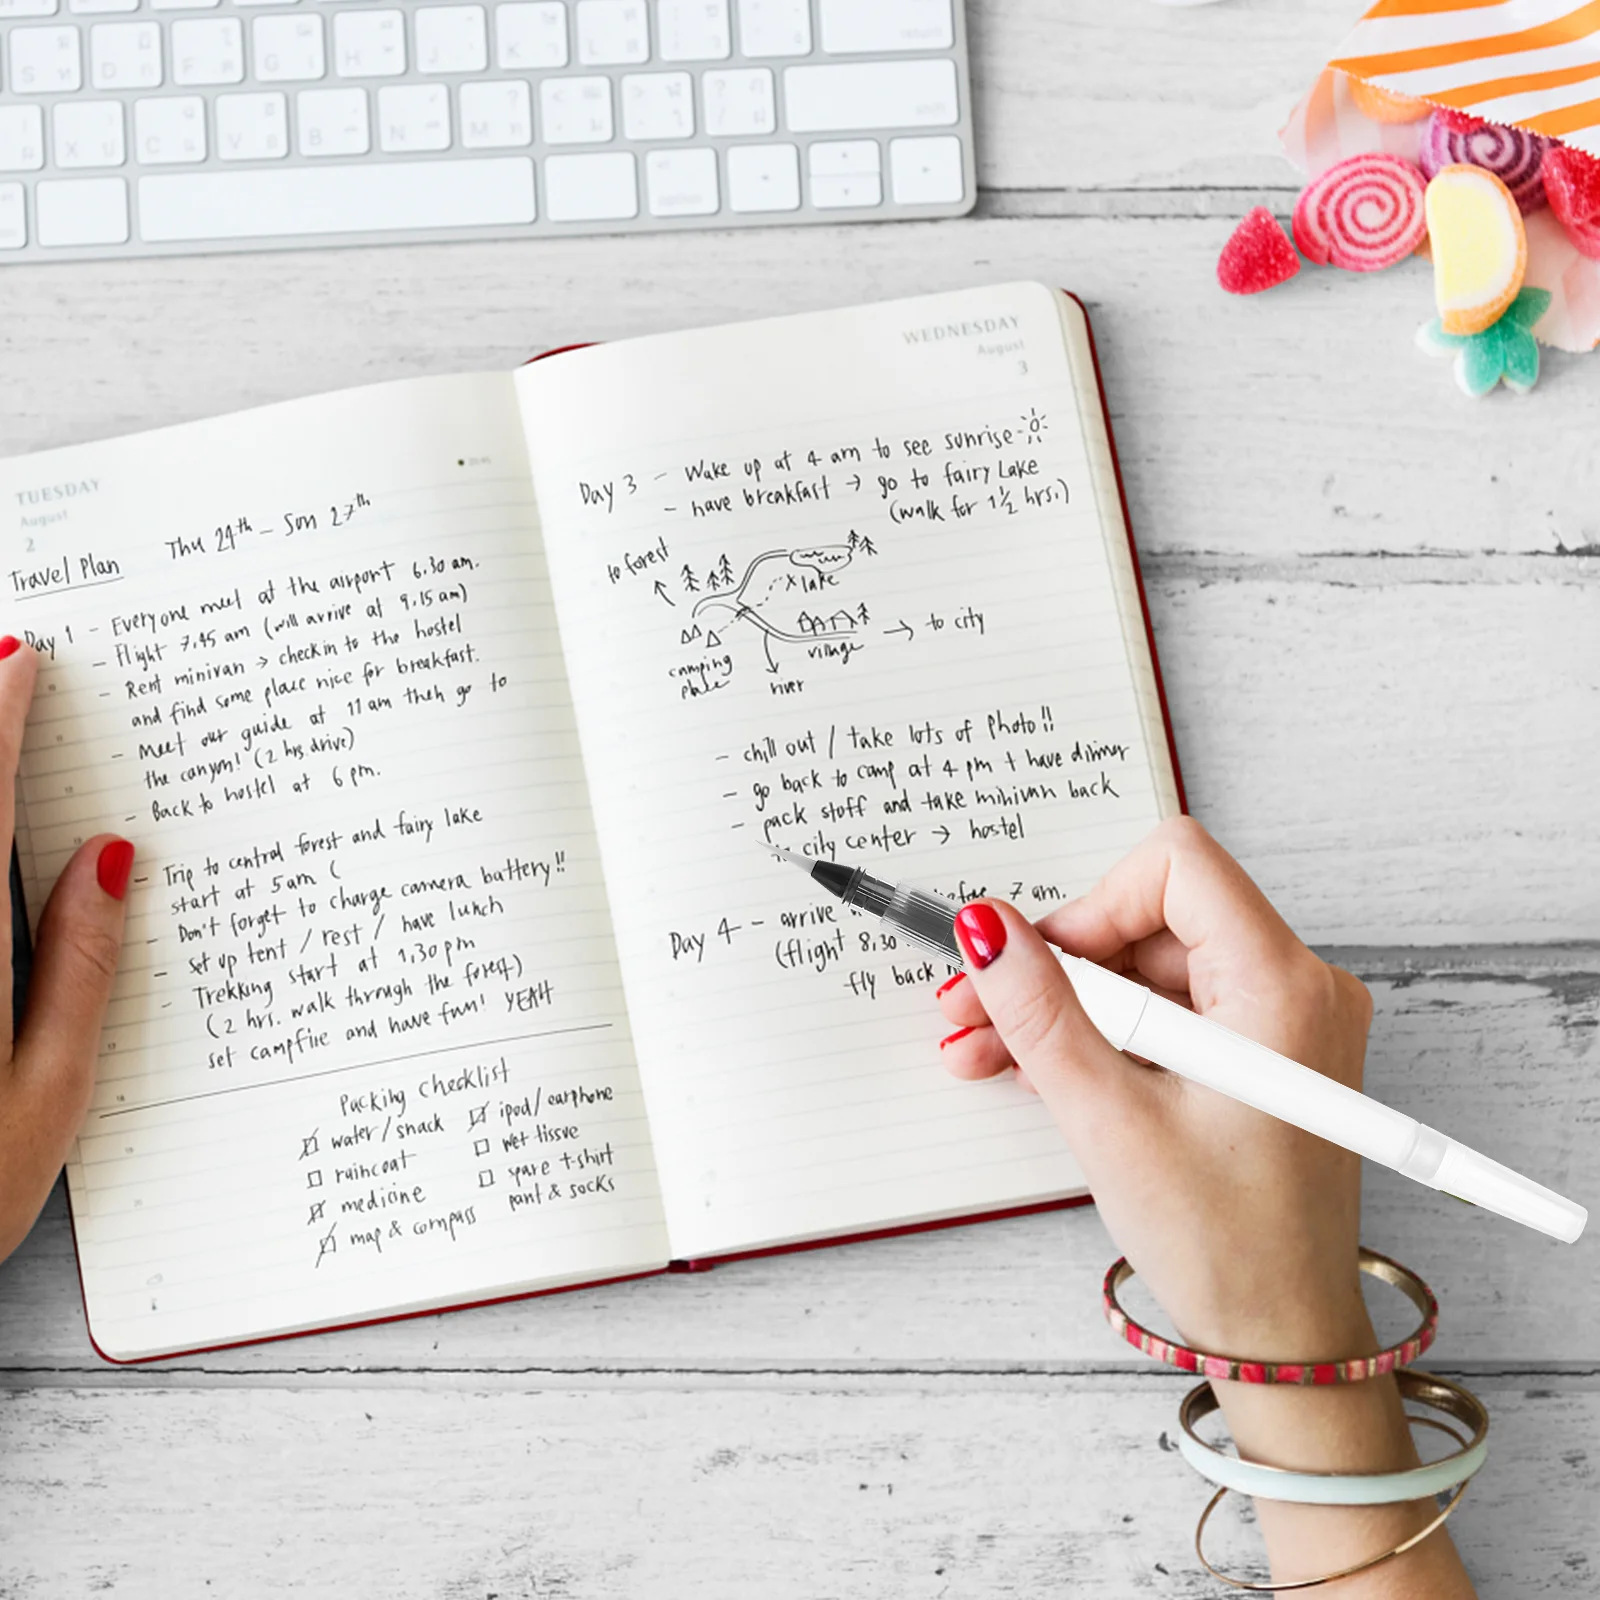 TUESDAY
August
2
Thu 24th – Sun 27th
Travel Plan
Day 1 – Everyone meet at the airport 6.30 am.
– Flight 7.45 am (will arrive at 9.15 am)
– Rent minivan → check in to the hostel
and find some place nice for breakfast.
– Meet our guide at 11 am then go to
the canyon! (2 hrs. drive)
– Back to hostel at 6 pm.
– Trip to central forest and fairy lake
start at 5 am (
– Don't forget to charge camera battery!!
– set up tent / rest / have lunch
– Trekking start at 1.30 pm
(2 hrs. walk through the forest)
set campfire and have fun! YEAH
Packing Checklist
water/snack
raincoat
medicine
map & compass
ipod/earphone
wet tissue
spare t-shirt
pant & socks
WEDNESDAY
August
3
Day 3 – Wake up at 4 am to see sunrise
– have breakfast → go to fairy Lake
(walk for 1½ hrs.)
to forest
x lake
→ to city
village
camping
place
river
– chill out / take lots of photo!!
– go back to camp at 4 pm + have dinner
– pack stuff and take minivan back
city center → hostel
Day 4 – arrive 7 am.
(flight 8.30
fly back
S
D
F
G
H
J
K
L
return
X
C
V
B
N
M
shift
option